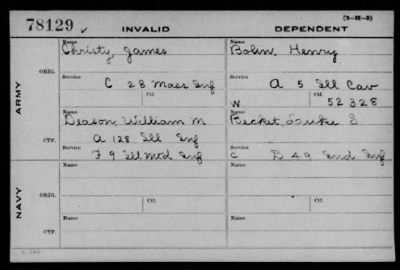 (3-11-5)
78129 ✓ INVALID DEPENDENT
Name Christy, James Name Bolin, Henry
ORIG.
Service C 28 Mass Inf Service A 5 Ill Cav
Ctf. Ctf.
ARMY W 52328
Name Deason, William M Name Becket, Luke S
CTF. A 128 Ill Inf
Service F 9 Ill Mtd Inf Service C D 49 Ind Inf
Name Name
ORIG.
Ctf. Ctf.
NAVY
Name Name
CTF.